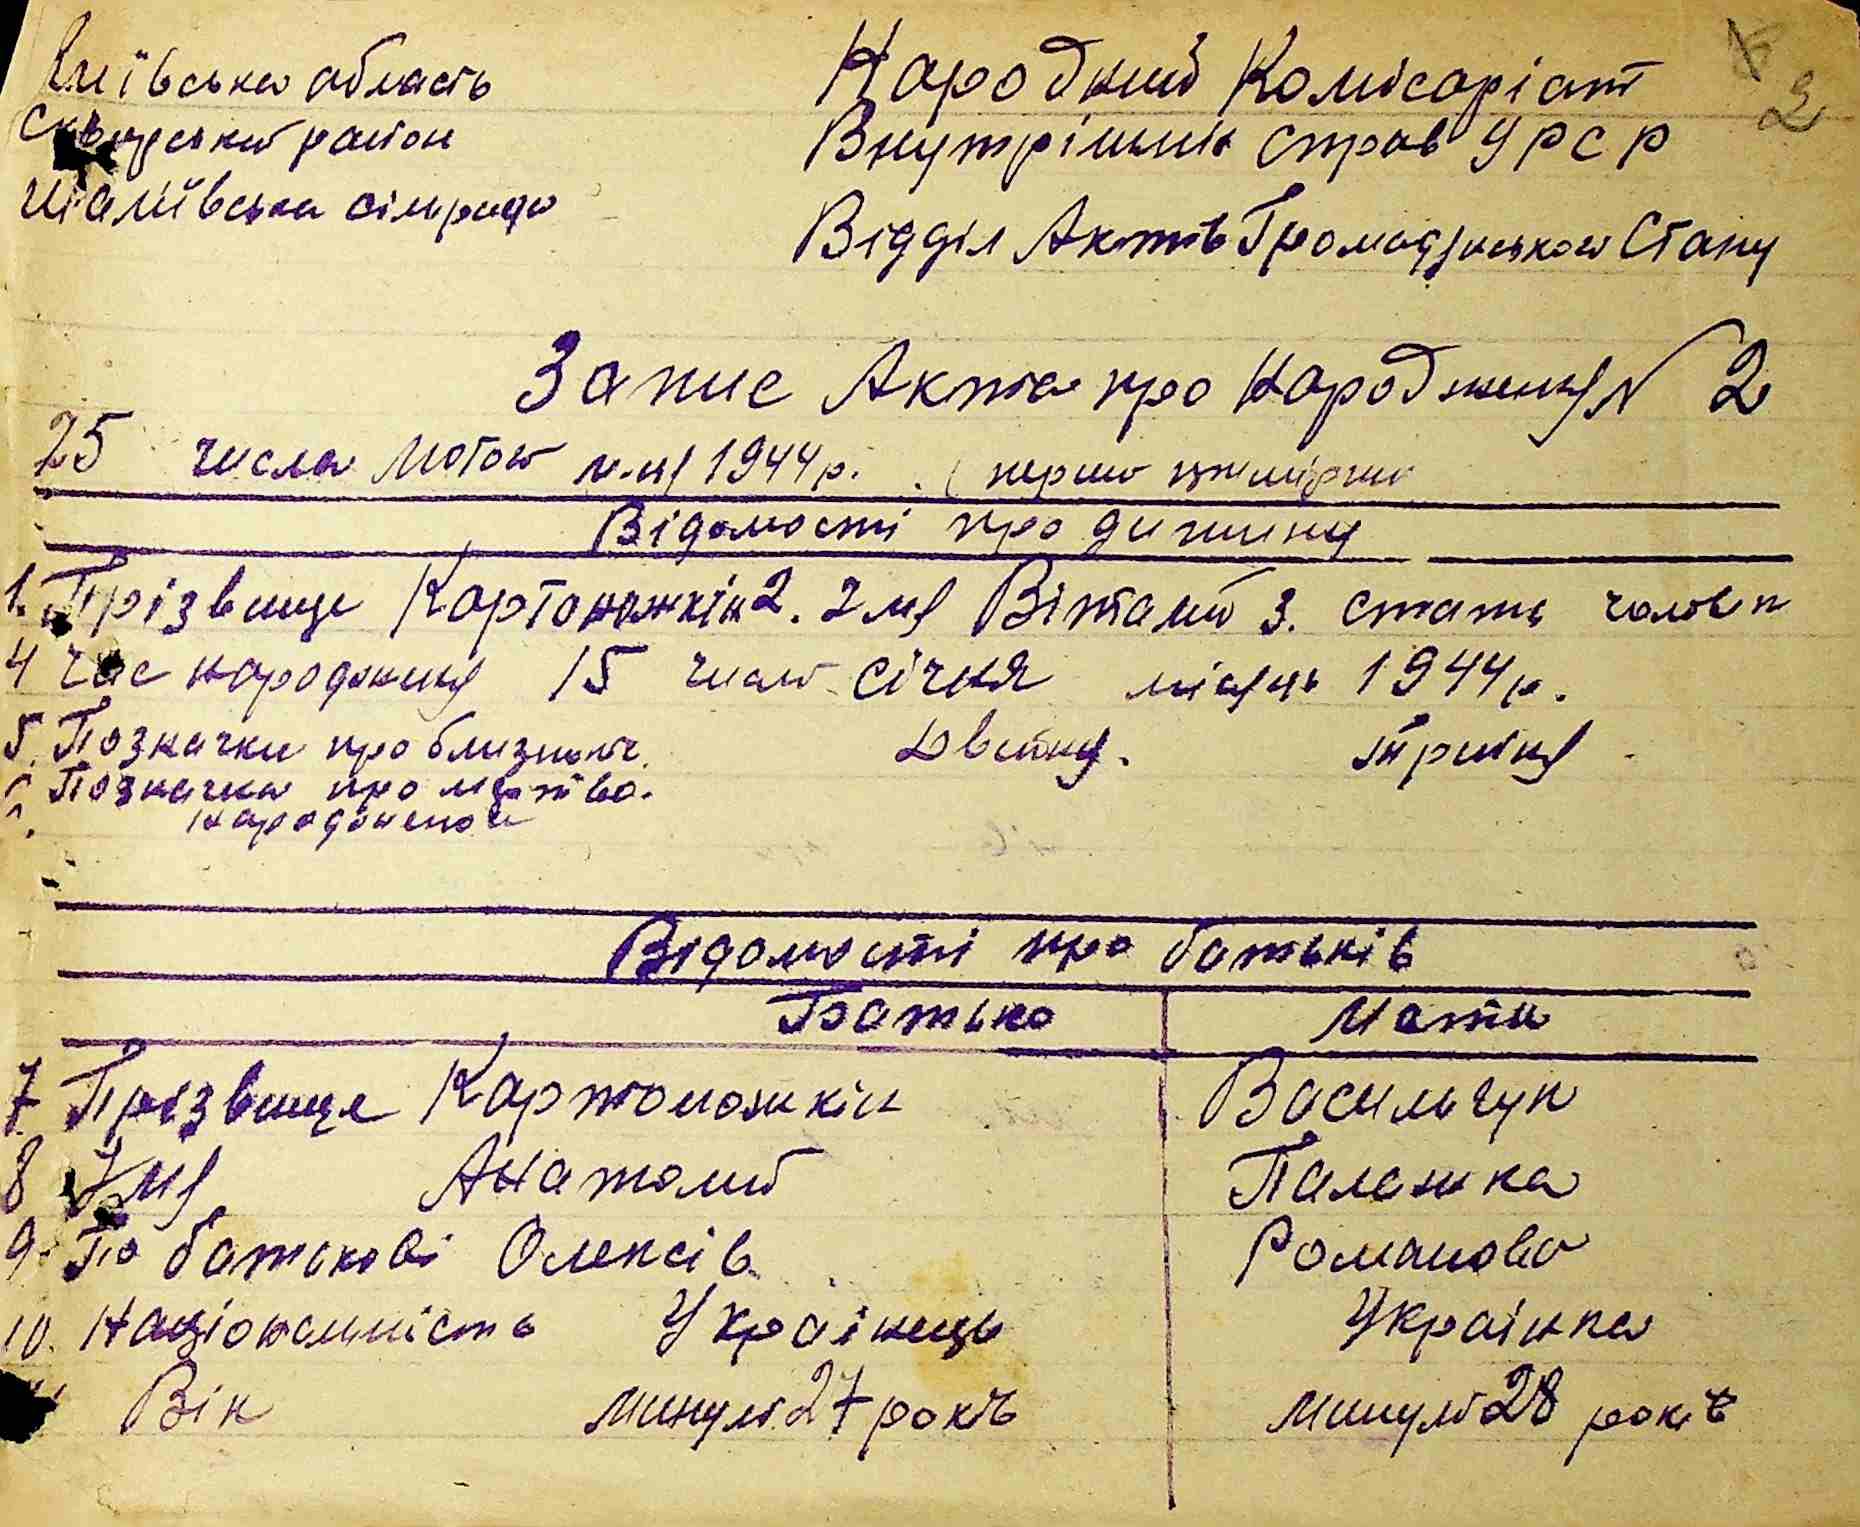 Київська область
Сквирський район
Шаліївська сільрада
Народний Комісаріат
Внутрішніх Справ УРСР
Відділ Актів Громадянського Стану
2
Запис Акта про Народження № 2
25 числа лютого м-ця 1944 р. (перший примірник
Відомості про дитину
1. Прізвище Картоножкін 2. Імя Віталій 3. стать чоловіч
4 Час народження 15 число січня місяць 1944 р.
5. Позначки про близнят. Двійня. трійня
6. Позначка про мертво.
народжених
Відомості про батьків
Батько Мати
7 Прізвище Картоножкін Васильчук
8 Імя Анатолій Палажка
9. По батькові Олексів Романова
10. Національність Українець Українка
11 Вік минуло 27 років минуло 28 років